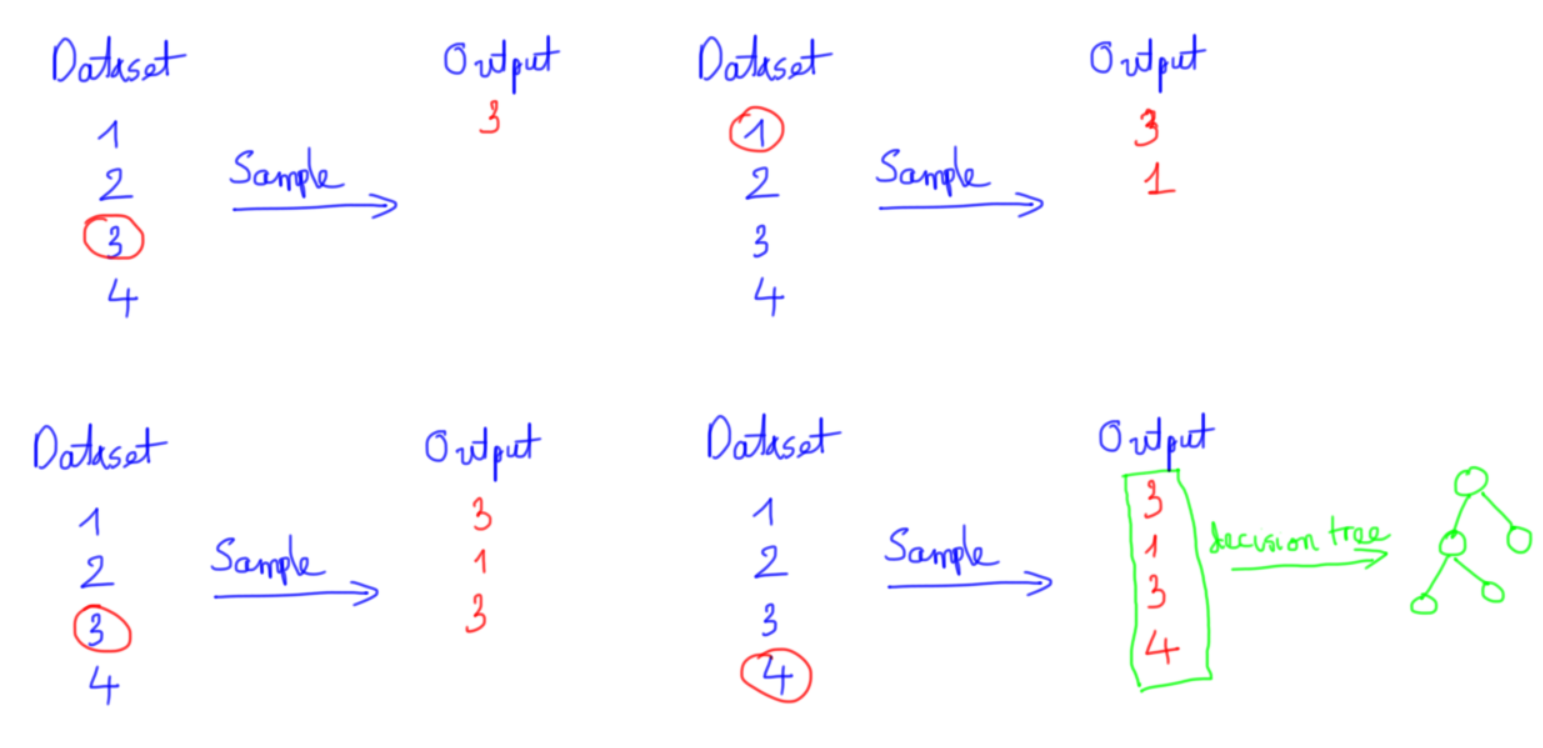 Dataset
1
2
3
4
Sample
Output
3
Dataset
1
2
3
4
Sample
Output
3
1
Dataset
1
2
3
4
Sample
Output
3
1
3
Dataset
1
2
3
4
Sample
Output
3
1
3
4
decision tree